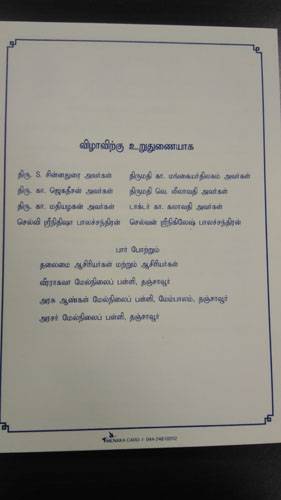 விழாவிற்கு உறுதுணையாக
திரு. S. சின்னதுரை அவர்கள் திருமதி கா. மங்கையர்திலகம் அவர்கள்
திரு. கா. ஜெகதீசன் அவர்கள் திருமதி வெ. லீலாவதி அவர்கள்
திரு. கா. மதியழகன் அவர்கள் டாக்டர் கா. கலாவதி அவர்கள்
செல்வி ஸ்ரீநிதிஷா பாலச்சந்திரன் செல்வன் ஸ்ரீநிகிலேஷ் பாலச்சந்திரன்
பார் போற்றும்
தலைமை ஆசிரியர்கள் மற்றும் ஆசிரியர்கள்
வீரராகவா மேல்நிலைப் பள்ளி, தஞ்சாவூர்
அரசு ஆண்கள் மேல்நிலைப் பள்ளி, மேம்பாலம், தஞ்சாவூர்
அரசர் மேல்நிலைப் பள்ளி, தஞ்சாவூர்
MENAKA CARD